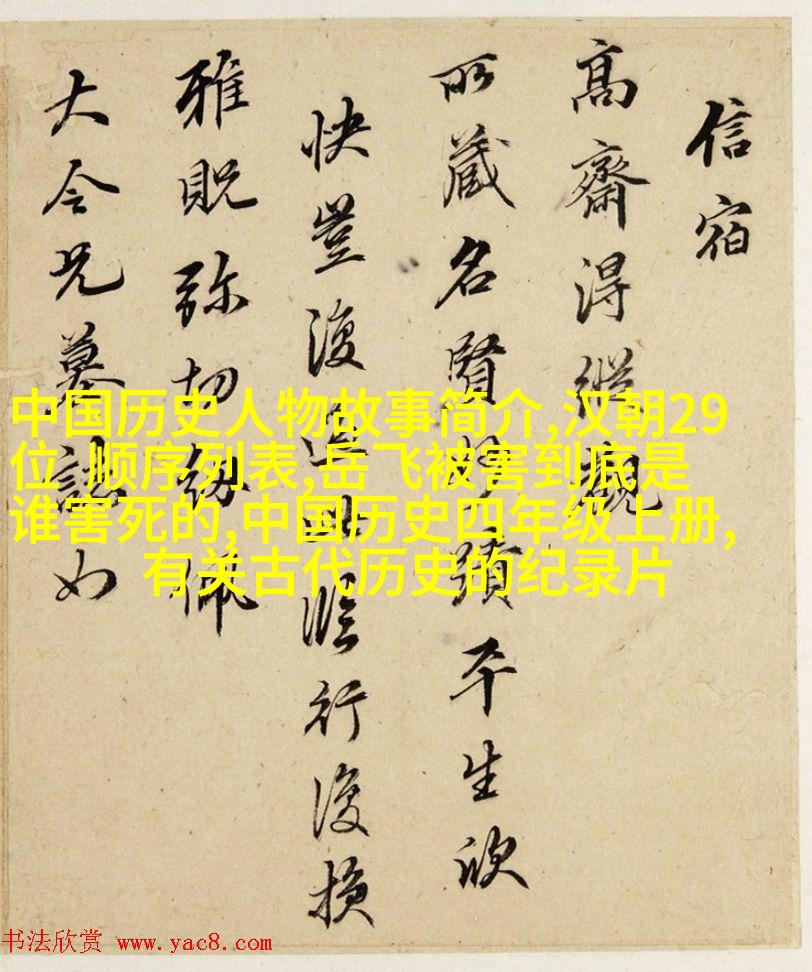 信宿
高齋得縱觀
所藏名賢妙蹟平生欣
快豈復過此臨行復損
雅貺弥切佩
大令兄墓誌如
中国历史人物故事简介,汉朝29
位 顺序列表,岳飞被害到底是
谁害死的,中国历史四年级上册,
有关古代历史的纪录片
书法欣赏 www.yac8.com